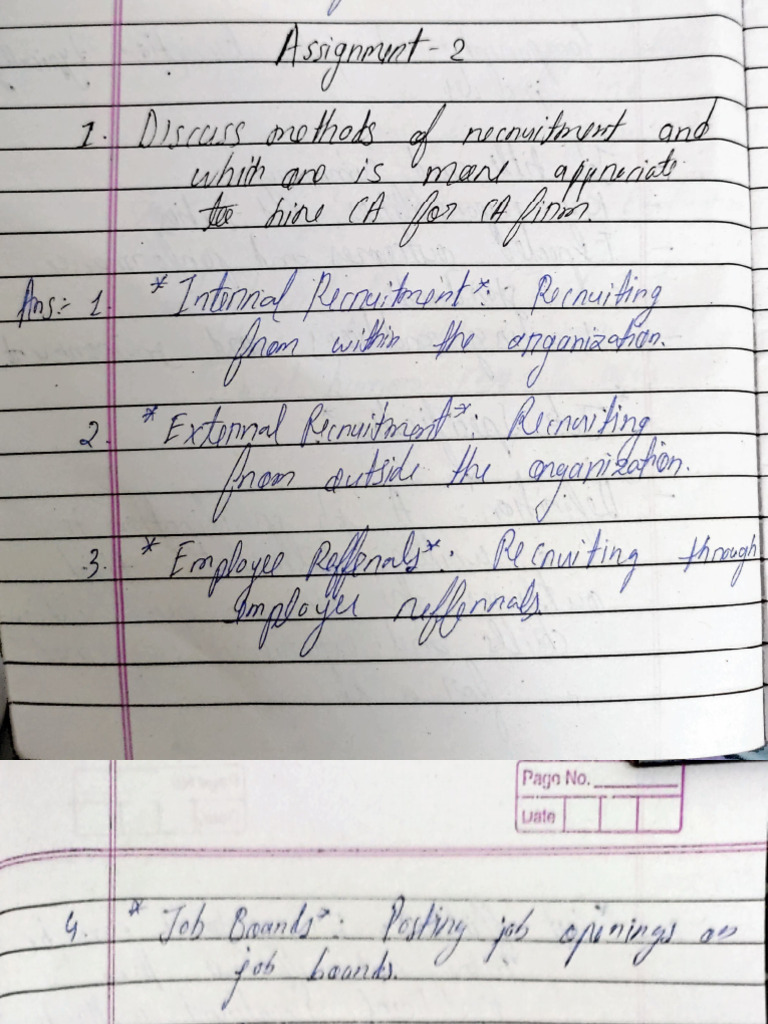 Assignment - 2
1. Discuss methods of recruitment and
which are is more appropriate
to hire CA for CA firm.
Ans:- 1. * Internal Recruitment*: Recruiting
from within the organization.
2. * External Recruitment*: Recruiting
from outside the organization.
3. * Employee Refferals*: Recruiting through
employee refferrals.
Page No.
Date
4. * Job Boards*: Posting job openings on
job boards.